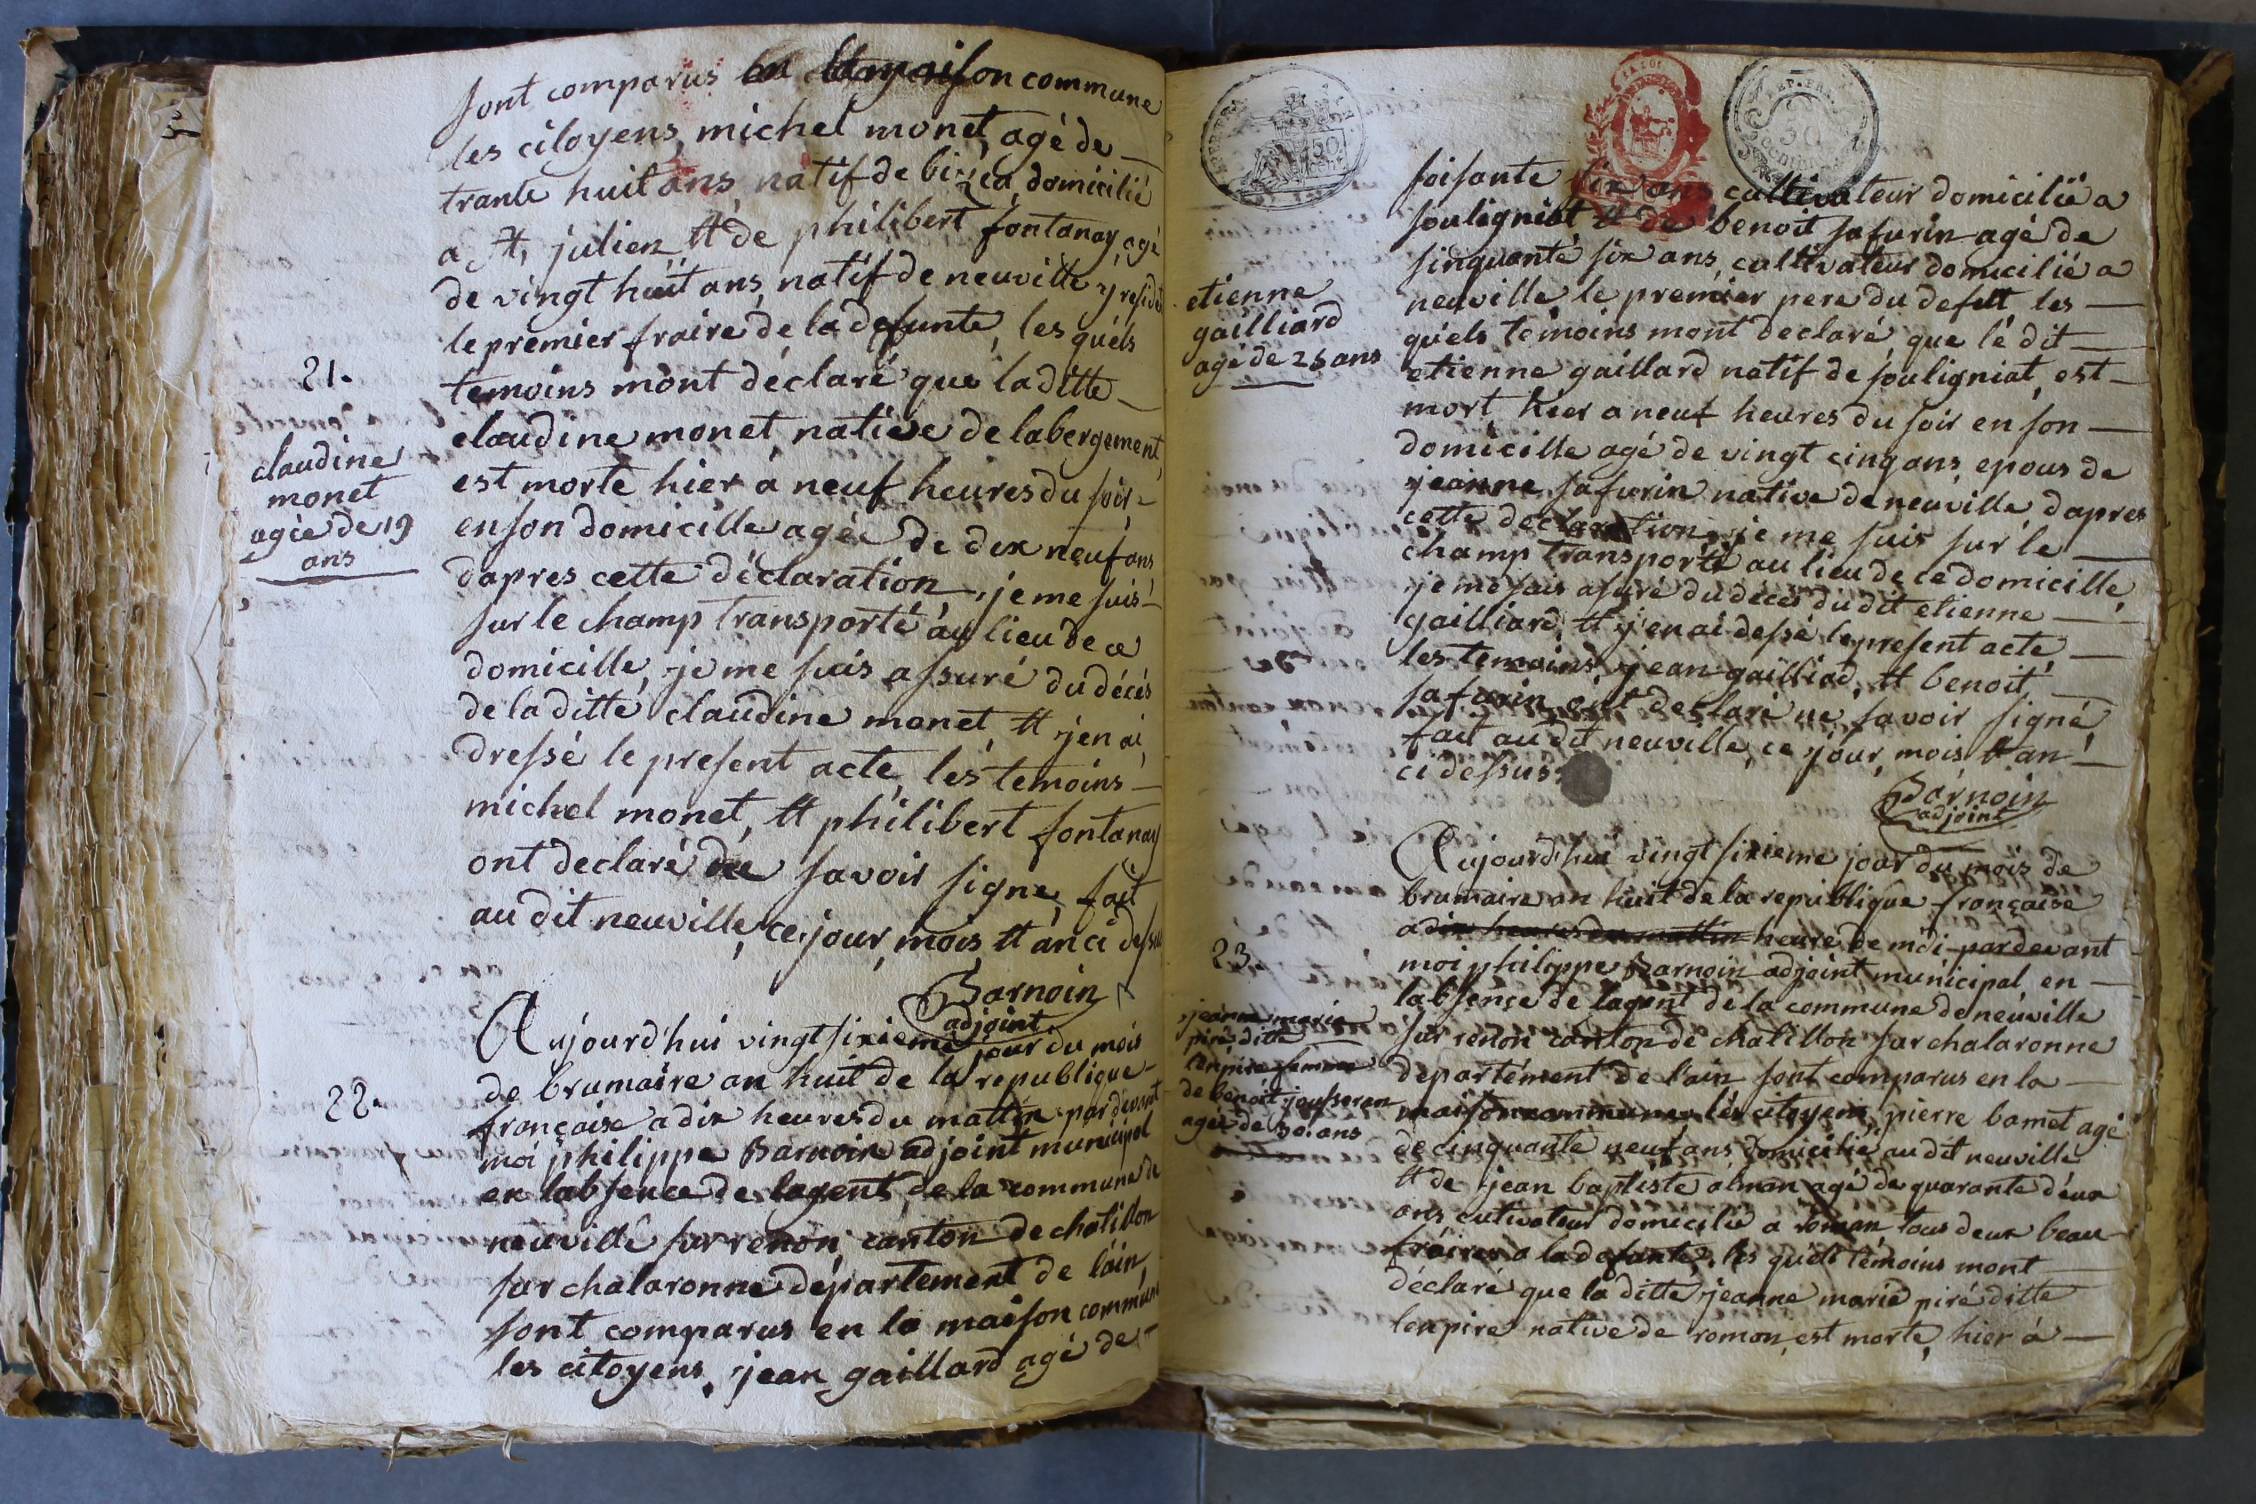 sont comparus en la maison commune
les citoyens, michel monet, agé de
trante huit ans, natif de bizea domicilié
a st, julien tt de philibert fontanay, agé
de vingt huit ans, natif de neuville y resid
le premier fraire de la defunte, les quéls
temoins mont déclaré que laditte
21.
claudine
monet
agée de 19
ans
claudine monet native de labergement,
est morte hier á neuf heures du soir
en son domicille agée de dix neuf ans
dapres cette déclaration, je me suis
sur le champ transporté au lieu de ce
domicille, je me suis assuré du décés
de laditte claudine monet tt j'en ai
dressé le present acte, les temoins
michel monet, tt philibert fontanay
ont declaré ne savoir signe, fait
au dit neuville, ce jour, mois, tt an ci dessu
Barnoin
adjoint
22.
Aujourd'hui vingt sixieme jour du mois
de brumaire an huit de la republique
française a dix heures du mattin par devant
moi philippe Barnoin adjoint municipal
en labsence de lagent, de la commune de
neuville sur renon canton de chatillon
sur chalaronne département de láin,
sont comparus en la maison commune
les citoyens, jean gaillard agé de
REP. FRA.
50
30
centimes
soisante six ans cultivateur domicilié a
souligniat tt de benoit safurin agé de
sinquante six ans, cultivateur domicilié a
neuville le premier pere du defutt les
quels temoins mont declaré que lé dit
etienne
gailliard
agé de 25 ans
etienne gaillard natif de souligniat, est
mort hier a neuf heures du soir en son
domicille agé de vingt cinq ans epous de
jeanne safurin native de neuville dapres
cette declaration, je me suis sur le
champ transporté au lieu de ce domicille,
je me suis asuré du décés du dit etienne
gailliard, tt j'en ai dessé le present acte,
les temoins, jean gailliad, tt benoit,
safurin ont declaré ne savoir signé,
fait au dit neuville, ce jour, mois tt an
ci dessus.
Barnoin
adjoint
Aujourd'hui vingt sixieme jour du mois de
brumaire an huit de la republique française
a dix heures du mattin heure de midi par devant
23.
moi philippe Barnoin adjoint municipal en
labsence de lagent de la commune de neuville
sur renon canton de chatillon sur chalaronne
jeanne marie
piré ditte
lenpire femme
de benoit jousseran
agée de 30 ans
département de l'ain sont comparus en la
maison commune, les citoyens, pierre bamet agé
de cinquante neuf ans domicilié au dit neuville
tt de jean baptiste alman agé de quarante déux
ans cutivateur domicilié a roman tous deux beau
fraires a la defunte, les quéls témoins mont
déclaré que la ditte jeanne marie piré ditte
lenpire native de romon, est morte, hier á